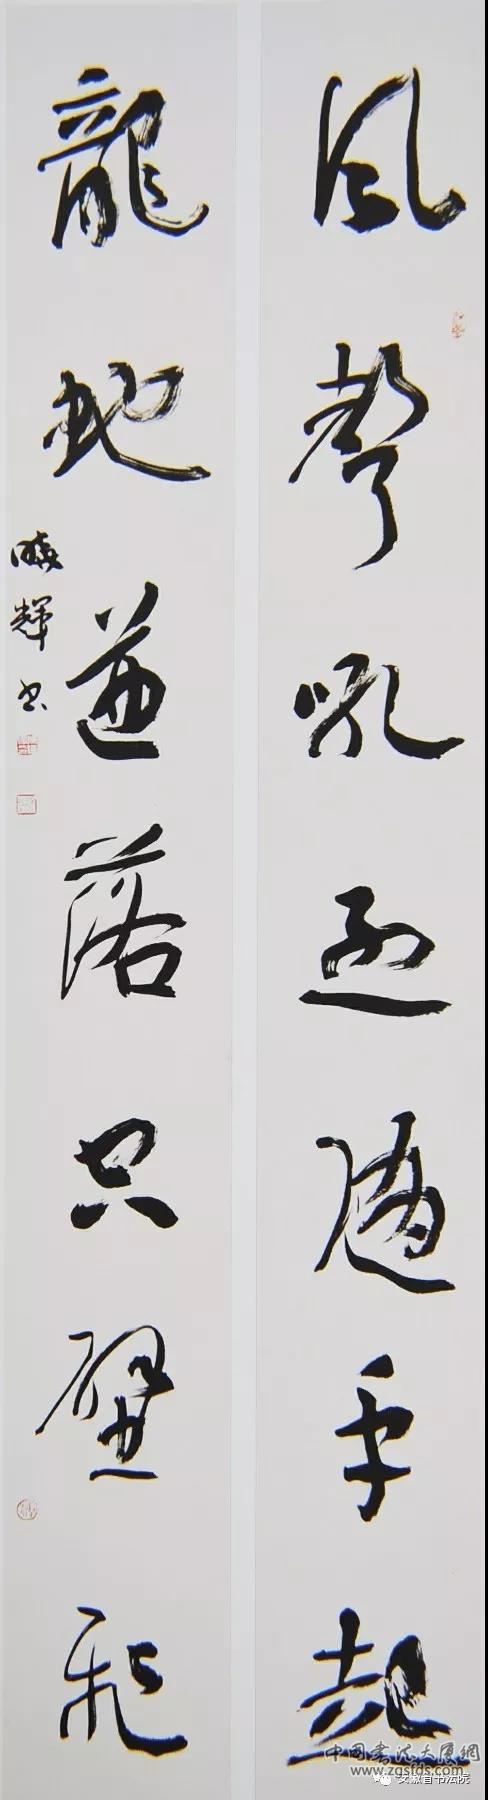 风聲吼烈随手起
龍蛇迸落空壁飛
曉輝书
中國書法大厦網
www.zgsfds.com
安徽省书法院